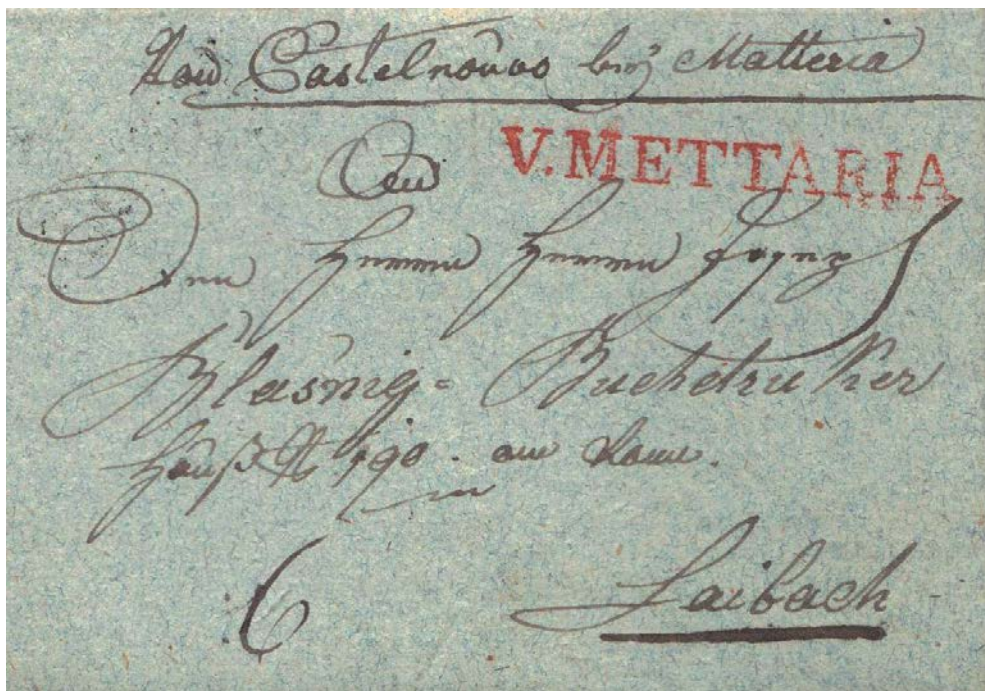 Von Castelnovo bey Matteria
V. METTARIA
An
Den Herrn Herrn
Blasnig = Buchdruker
Hauß N 190. am
6
Laibach